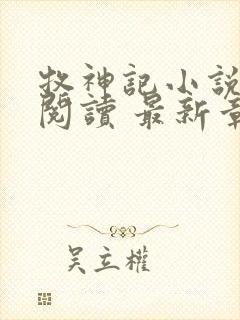 牧神記小說
閱讀 最新章
吳立權